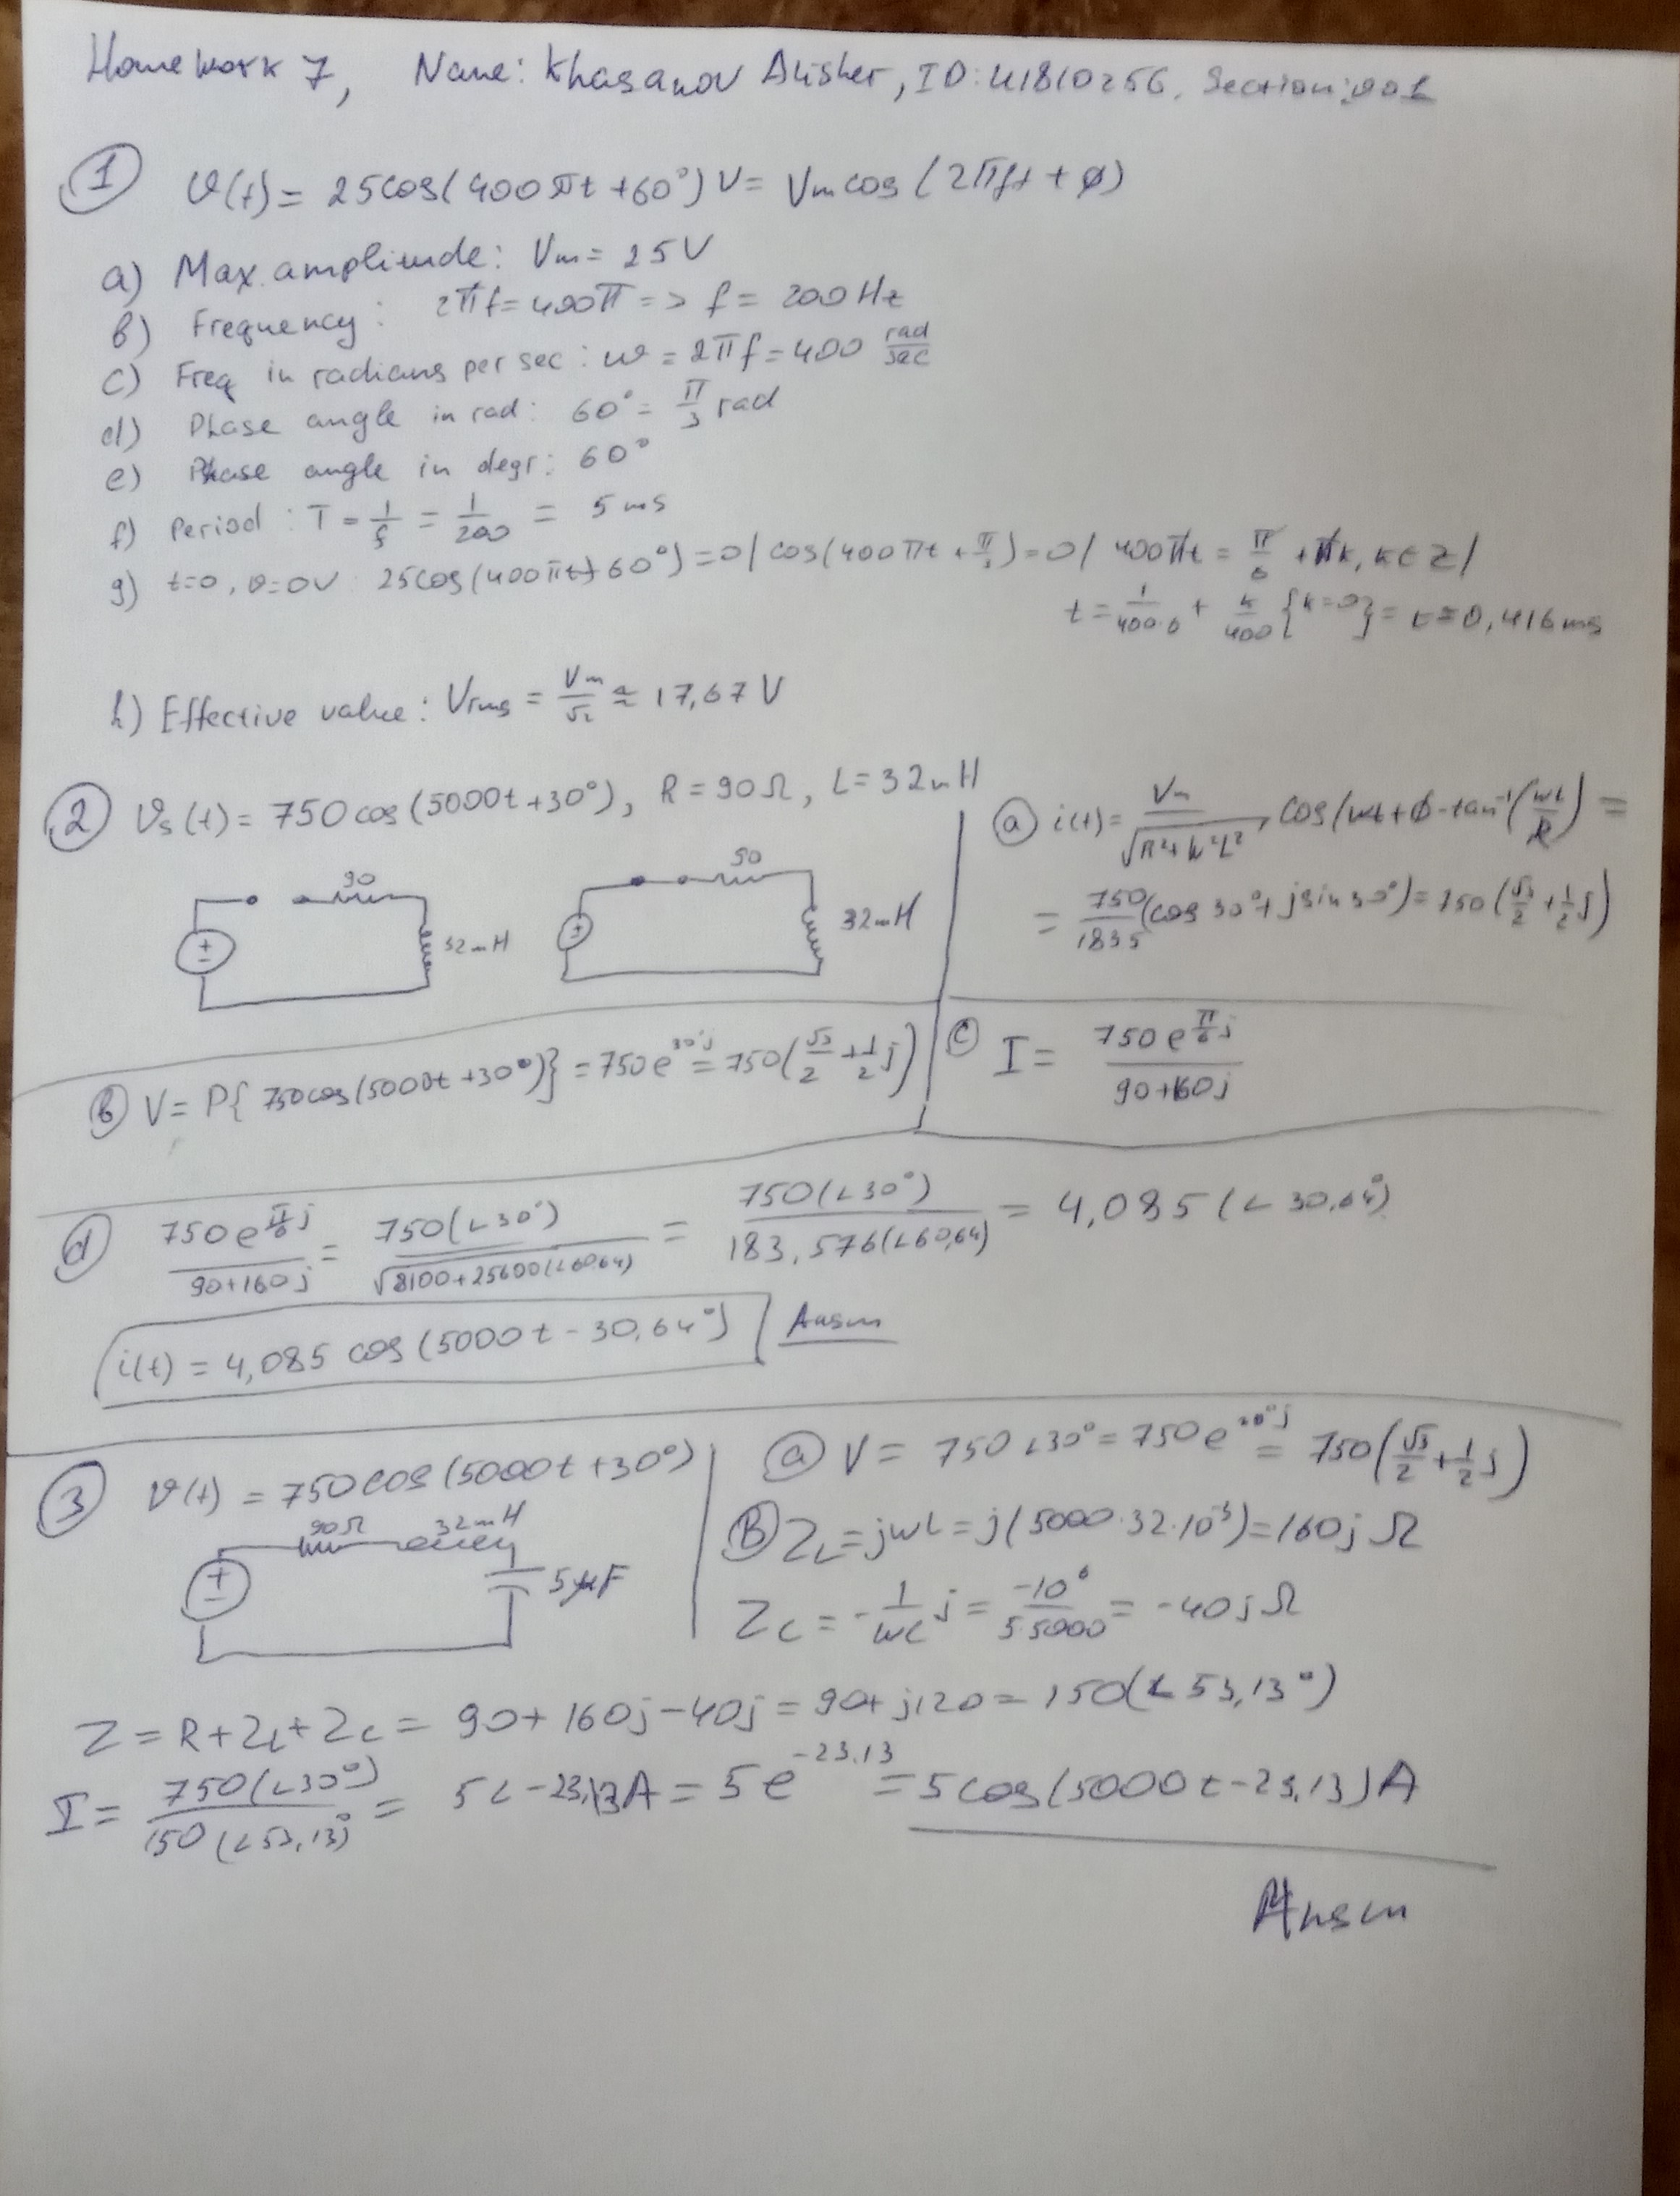 Homework 7, Name: Khasanov Alisher, ID: U1810256, Section: 001
1 ϑ(t) = 25cos(400πt +60°) V = Vm cos (2πft + ϕ)
a) Max. amplitude: Vm = 25V
b) Frequency: 2πf = 400π => f = 200 Hz
c) Freq in radians per sec: w = 2πf = 400 rad/sec
d) Phase angle in rad: 60° = π/3 rad
e) Phase angle in degr: 60°
f) Period: T = 1/f = 1/200 = 5 ms
g) t=0, ϑ=0V 25cos(400πt+60°) = 0 / cos(400πt + π/3) = 0 / 400πt = π/6 + πk, k∈Z /
t = 1/400·6 + k/400 {k=0} = t≈0,416 ms
h) Effective value: Vrms = Vm/√2 ≈ 17,67 V
2 ϑs(t) = 750 cos(5000t+30°), R = 90Ω, L = 32mH
a i(t) = Vm/√R²+w²L² cos(wt+ϕ-tan⁻¹(wL/R)) =
= 750/1835 (cos 30°+ jsin30°) = 750 (√3/2 + 1/2 j)
90
32mH
90
32mH
b V = P{750cos(5000t+30°)} = 750e^30°j = 750(√3/2 + 1/2 j)
c I = 750e^π/6 j / 90+160j
d 750e^π/6 j / 90+160j = 750(∠30°) / √8100+25600(∠60,64) = 750(∠30°) / 183,576(∠60,64) = 4,085 (∠30,64°)
i(t) = 4,085 cos(5000t - 30,64°) Answ
3 ϑ(t) = 750cos(5000t+30°)
90Ω 32mH
5μF
a V = 750∠30° = 750e^30°j = 750(√3/2 + 1/2 j)
B ZL = jwL = j(5000·32·10⁻³) = 160j Ω
Zc = -1/wc j = -10⁶/5·5000 = -40j Ω
Z = R+ZL+Zc = 90+160j-40j = 90+j120 = 150(∠53,13°)
I = 750(∠30°)/150(∠53,13°) = 5∠-23,13A = 5e^-23.13 = 5cos(5000t-23,13)A
Answ